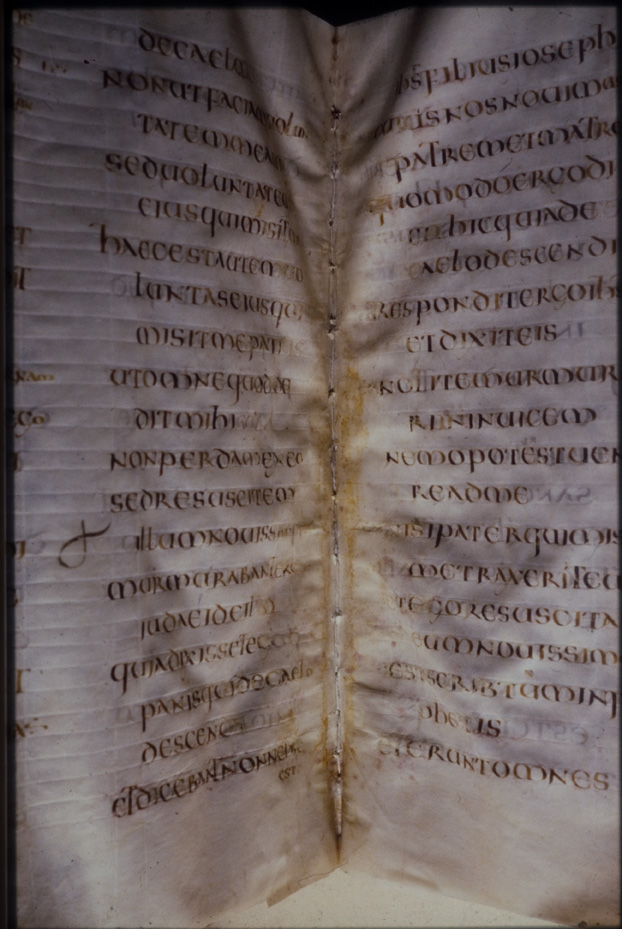 decaelo
nonutfaciamuolun
tatemmeam
seduoluntatem
eiusquimisit
haecestautemuo
luntaseiusqui
misitmepatris
utomnequodde
ditmihi
nonperdamexeo
sedresuscitem
illumnouissimo
murmurabanter
iudaeideillo
quiadixissetego
panisquidecaelo
descendi
etdicebantnonnehic
est
ihsfiliusioseph
cuiusnosnouimus
patremetmatre
quomodoergodi
hicquiade
caelodescendi
responditergoihs
etdixiteis
nolitemurmur
ininuicem
nemopotestuen
readme
nisipaterquimis
metraxeriteu
etegoresuscita
eumnouissim
estscribtuminp
phetis
eteruntomnes